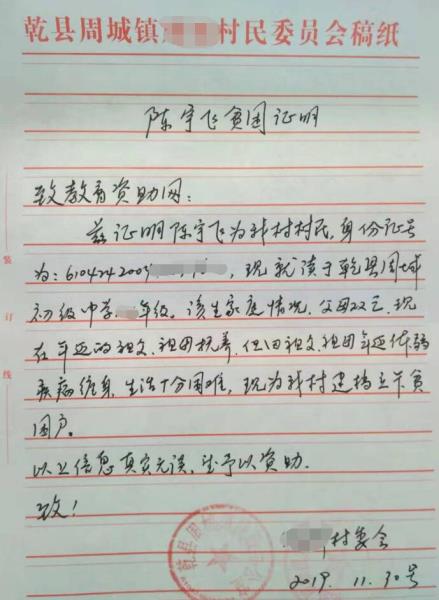 乾县周城镇 村民委员会稿纸
陈宇飞贫困证明
致教育资助网：
兹证明陈宇飞为我村村民，身份证号
为：610424200 ，现就读于乾县周城
初级中学 年级。该生家庭情况，父母双亡，现
在年迈的祖父、祖母抚养，但因祖父、祖母年迈体弱
疾病缠身，生活十分困难，现为我村建档立卡贫
困户。
以上信息真实无误，望予以资助。
致！
村委会
2019. 11. 30号
装
订
线
乾县周城